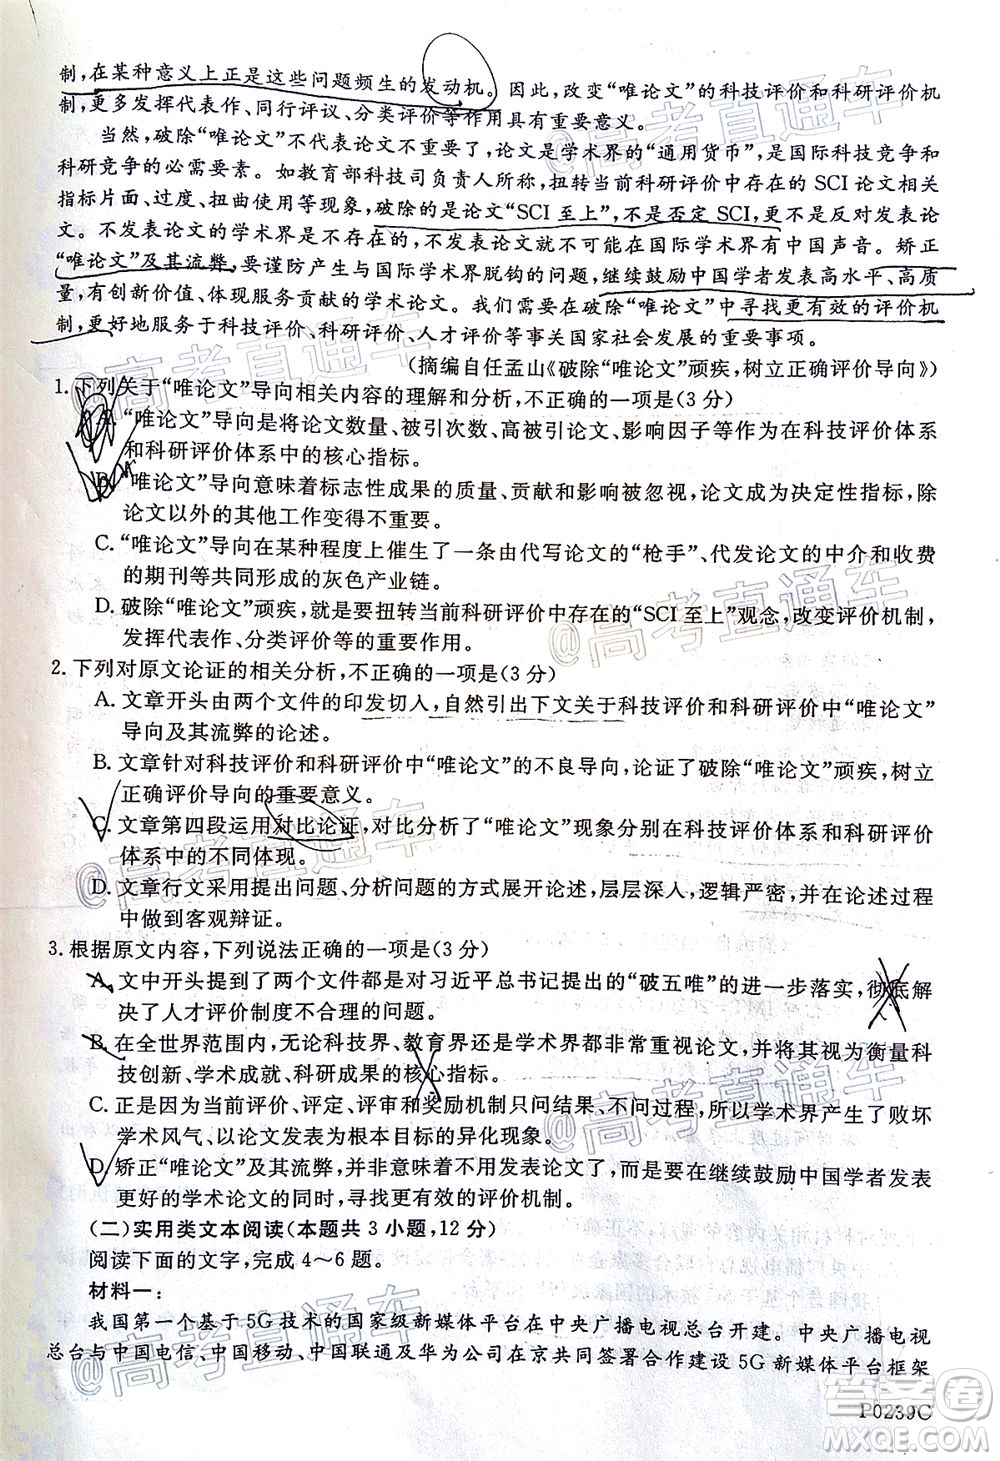 制,在某种意义上正是这些问题频生的发动机。因此,改变“唯论文”的科技评价和科研评价机
制,更多发挥代表作、同行评议、分类评价等作用具有重要意义。
当然,破除“唯论文”不代表论文不重要了,论文是学术界的“通用货币”,是国际科技竞争和
科研竞争的必需要素。如教育部科技司负责人所称,扭转当前科研评价中存在的 SCI 论文相关
指标片面、过度、扭曲使用等现象,破除的是论文“SCI 至上”,不是否定 SCI,更不是反对发表论
文。不发表论文的学术界是不存在的,不发表论文就不可能在国际学术界有中国声音。矫正
“唯论文”及其流弊,要谨防产生与国际学术界脱钩的问题,继续鼓励中国学者发表高水平、高质
量,有创新价值、体现服务贡献的学术论文。我们需要在破除“唯论文”中寻找更有效的评价机
制,更好地服务于科技评价、科研评价、人才评价等事关国家社会发展的重要事项。
(摘编自任孟山《破除“唯论文”顽疾,树立正确评价导向》)
1. 下列关于“唯论文”导向相关内容的理解和分析,不正确的一项是(3 分)
“唯论文”导向是将论文数量、被引次数、高被引论文、影响因子等作为在科技评价体系
和科研评价体系中的核心指标。
“唯论文”导向意味着标志性成果的质量、贡献和影响被忽视,论文成为决定性指标,除
论文以外的其他工作变得不重要。
C. “唯论文”导向在某种程度上催生了一条由代写论文的“枪手”、代发论文的中介和收费
的期刊等共同混杂的灰色产业链。
D. 破除“唯论文”顽疾,就是要扭转当前科研评价中存在的“SCI 至上”观念,改变评价机制,
发挥代表作、分类评价等的重要作用。
2. 下列对原文论证的相关分析,不正确的一项是(3 分)
A. 文章开头由两个文件的印发切入,自然引出下文关于科技评价和科研评价中“唯论文”
导向及其流弊的论述。
B. 文章针对科技评价和科研评价中“唯论文”的不良导向,论证了破除“唯论文”顽疾,树立
正确评价导向的重要意义。
C. 文章第四段运用对比论证,对比分析了“唯论文”现象分别在科技评价体系和科研评价
体系中的不同体现。
D. 文章行文采用提出问题、分析问题的方式展开论述,层层深入,逻辑严密,并在论述过程
中做到客观辩证。
3. 根据原文内容,下列说法正确的一项是(3 分)
A. 文中开头提到了两个文件都是对习近平总书记提出的“破五唯”的进一步落实,彻底解
决了人才评价制度不合理的问题。
B. 在全世界范围内,无论科技界、教育界还是学术界都非常重视论文,并将其视为衡量科
技创新、学术成就、科研成果的核心指标。
C. 正是因为当前评价、评定、评审和奖励机制只问结果、不问过程,所以学术界产生了败坏
学术风气、以论文发表为根本目标的异化现象。
D. 矫正“唯论文”及其流弊,并非意味着不用发表论文了,而是要在继续鼓励中国学者发表
更好的学术论文的同时,寻找更有效的评价机制。
(二)实用类文本阅读(本题共 3 小题,12 分)
阅读下面的文字,完成 4～6 题。
材料一:
我国第一个基于 5G 技术的国家级新媒体平台在中央广播电视总台开建。中央广播电视
总台与中国电信、中国移动、中国联通及华为公司在京共同签署合作建设 5G 新媒体平台框架
P0239C
@高考直通车
答案卷
MXQE.COM